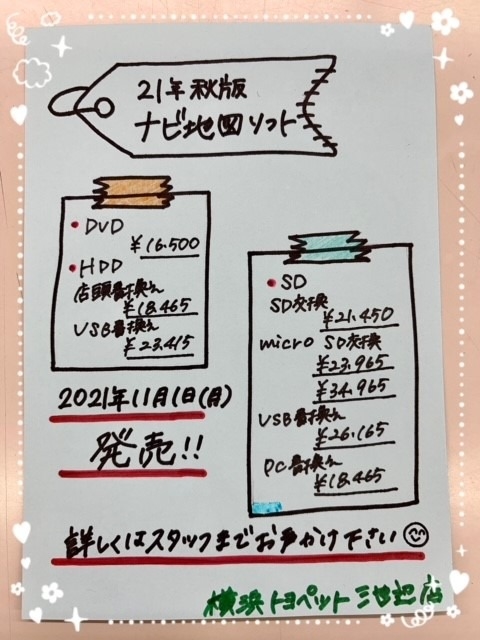 21年秋版
ナビ地図ソフト
• DVD
¥16.500
• HDD
店頭書換え
¥18.465
USB書換え
¥23.415
• SD
SD交換
¥21.450
micro SD交換
¥23.965
¥34.965
USB書換え
¥26.165
PC書換え
¥18.465
2021年11月1日(月)
発売!!
詳しくはスタッフまでお声かけ下さい
横浜トヨペット三ツ境店